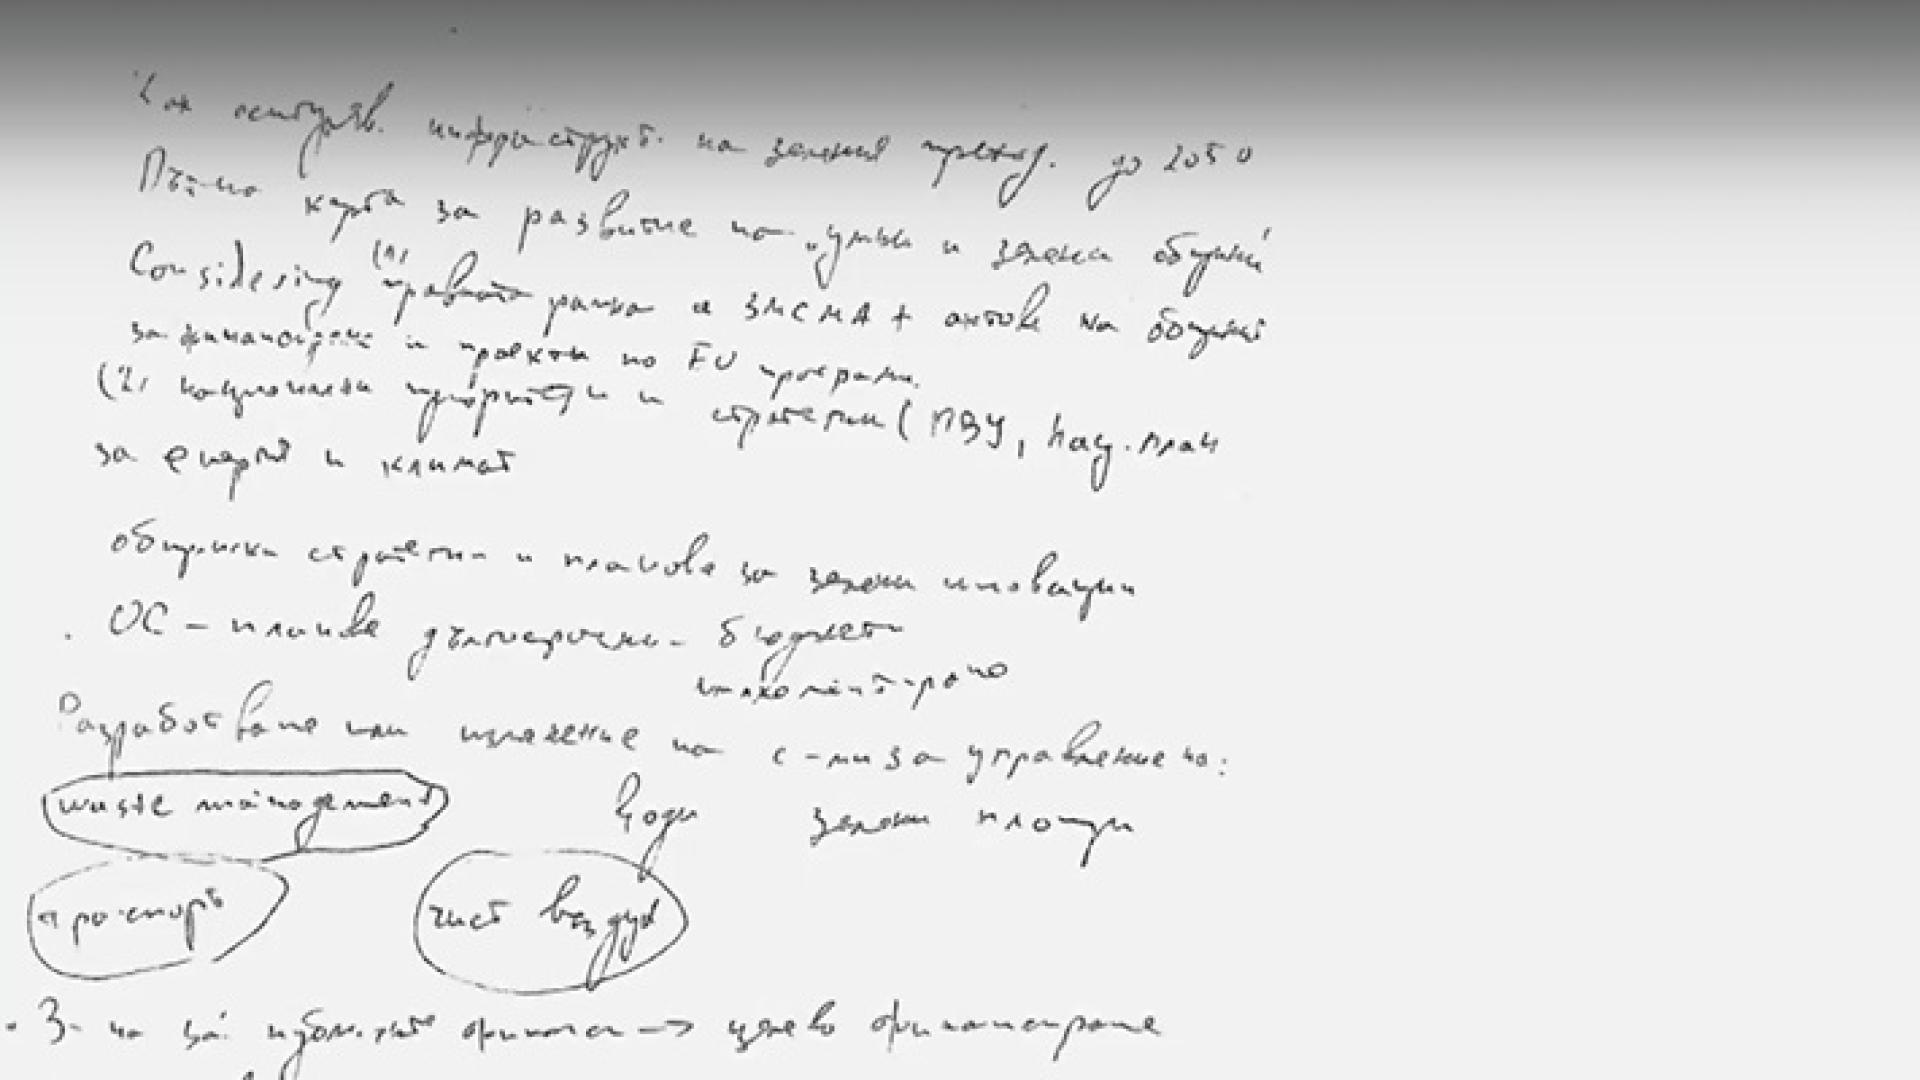 Как осигуряв. инфраструкт. на зеления преход. до 2050
Пътна карта за развитие на "умни и зелени общини"
Considering (1) правната рамка а ЗМСМА + актове на общині
за финансиране и проекти по EU програми.
(2) национални приоритети и стратегии (ПВУ, Нац. план
за енергия и климат
общински стратегии и планове за зелени иновации
. ОС - планове дългосрочни - бюджет
Разработване или изменение на с-ми за управление на:
waste management води зелени площи
транспорт чист въздух
. З- на публ. финанси → целево финансиране